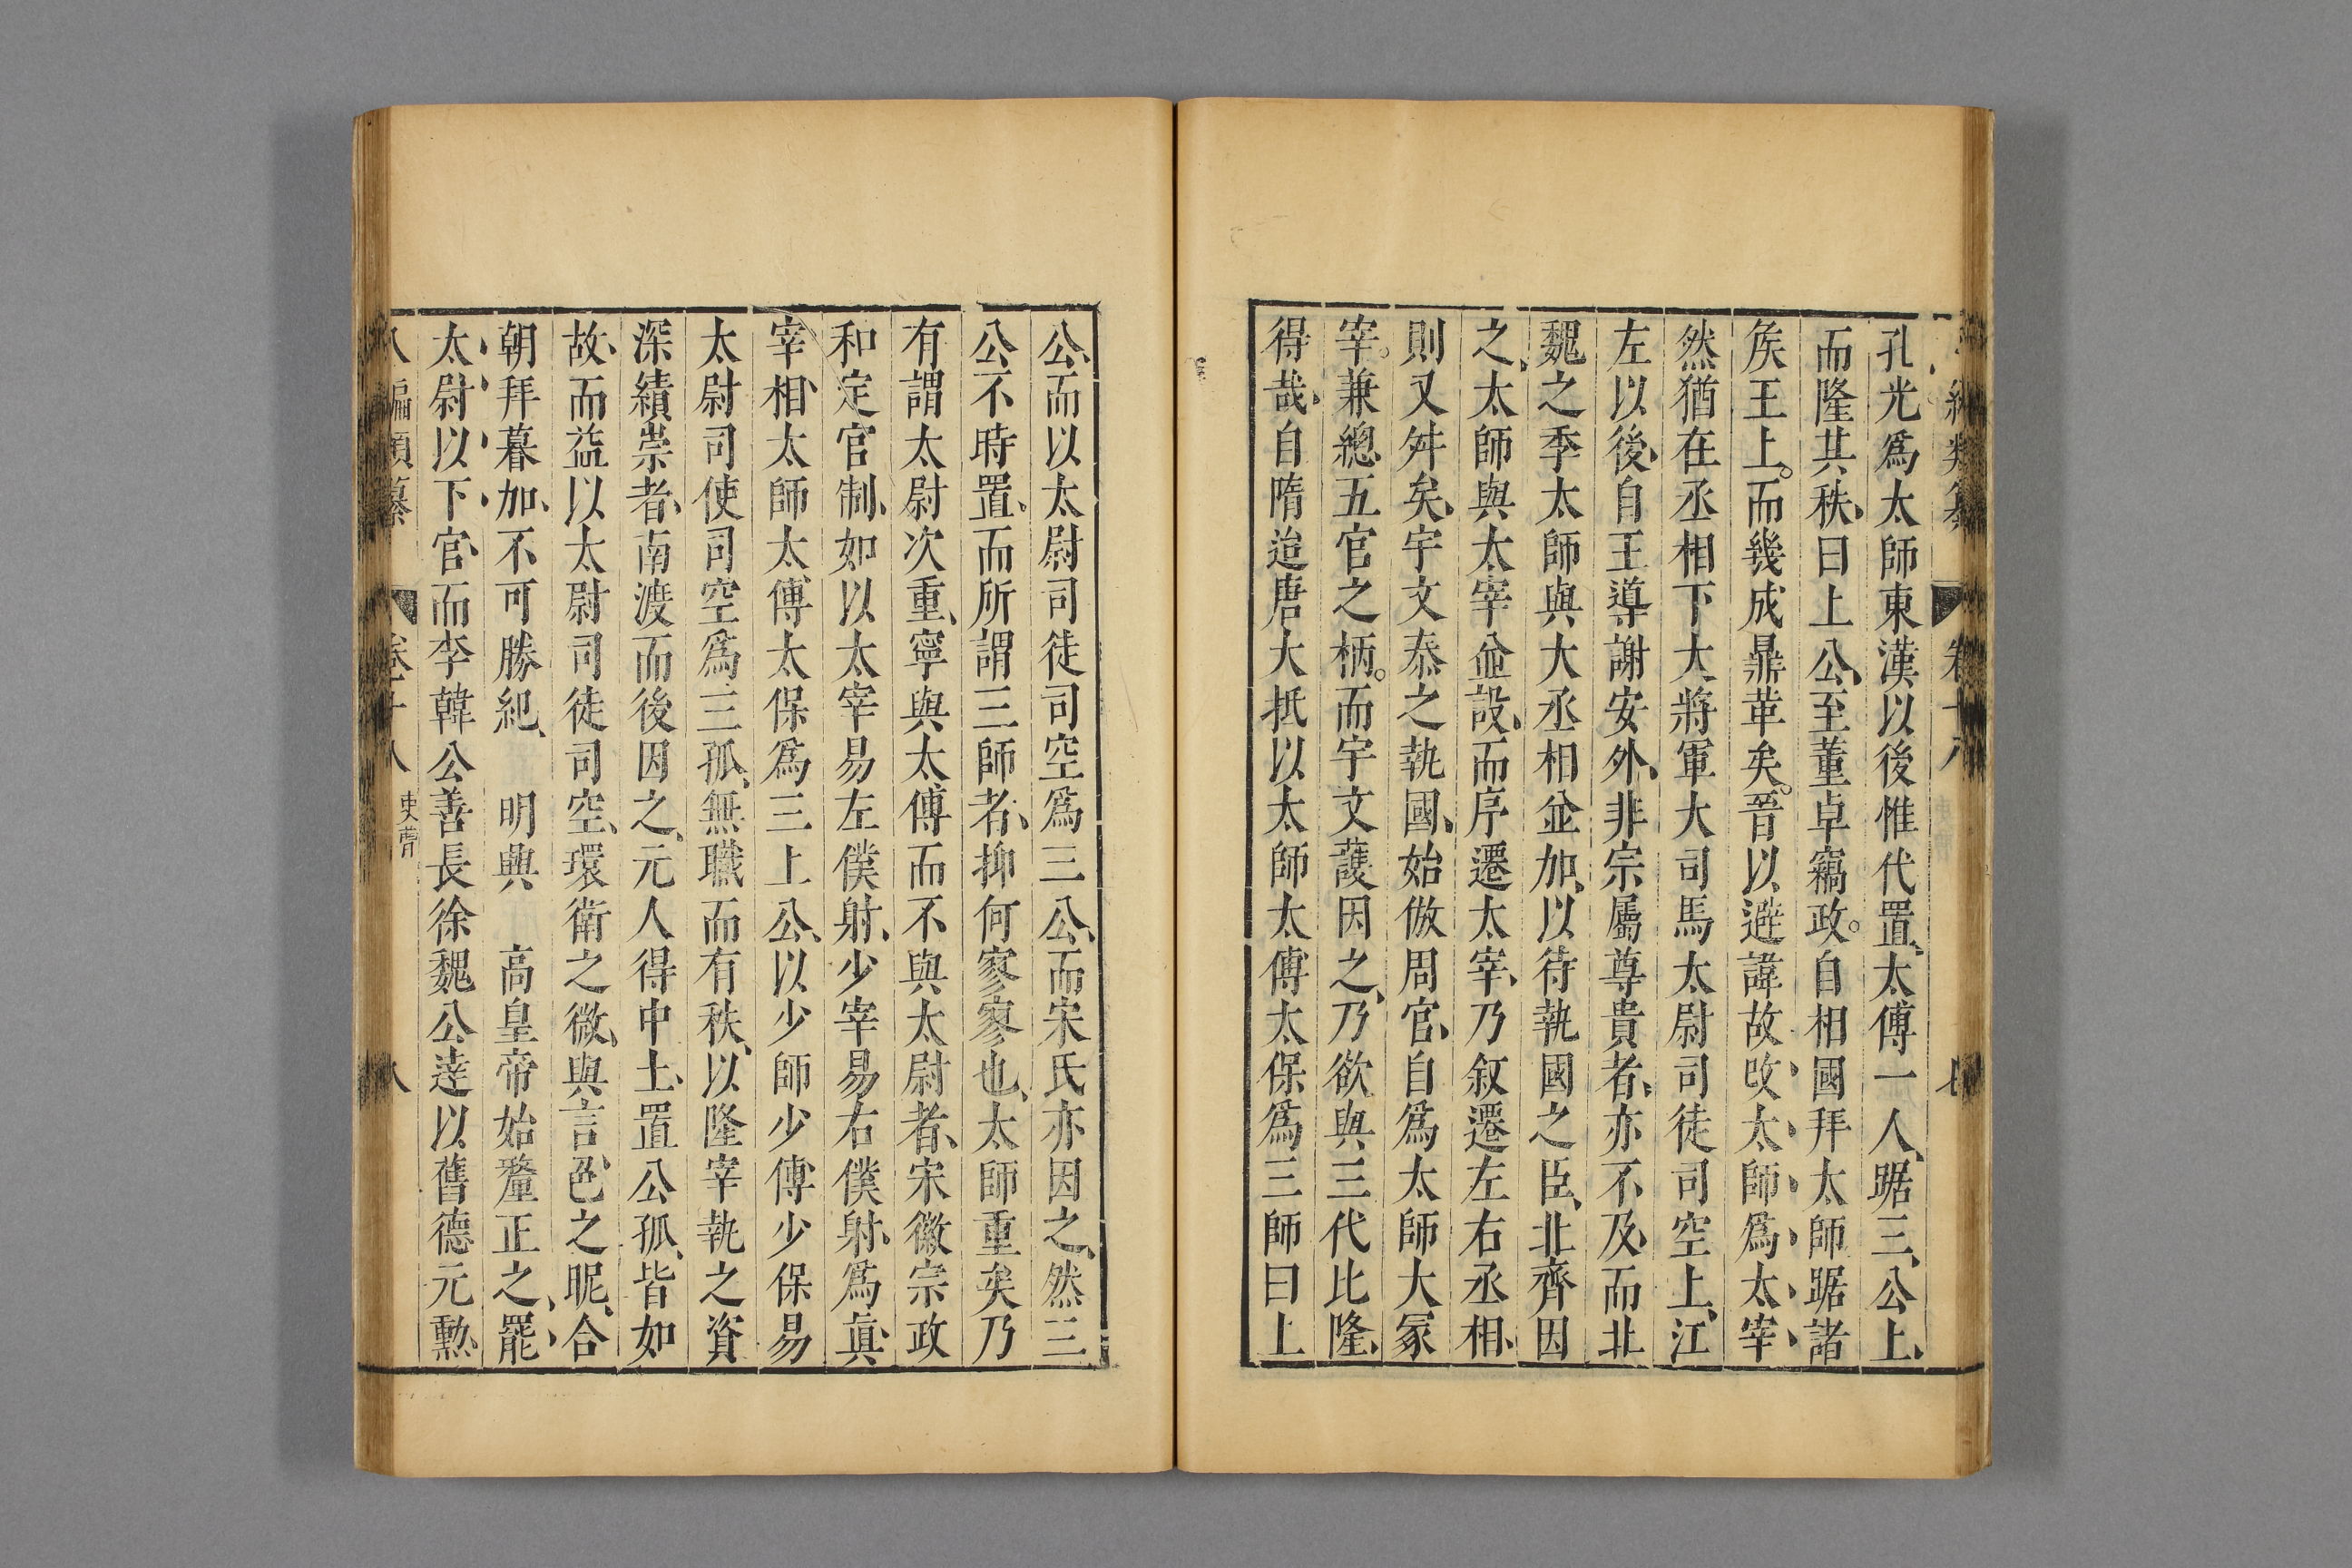 孔光爲太師東漢以後惟代置太傅一人踞三公上
而隆其秩曰上公至董卓竊政自相國拜太師踞諸
矦王上而幾成鼎革矣晉以避諱故改太師爲太宰
然猶在丞相下大將軍大司馬太尉司徒司空上江
左以後自王導謝安外非宗屬尊貴者亦不及而北
魏之季太師與大丞相並加以待執國之臣北齊因
之太師與太宰並設而序遷太宰乃叙遷左右丞相
則又舛矣宇文泰之執國始倣周官自爲太師大冢
宰兼總五官之柄而宇文護因之乃欲與三代比隆
得哉自隋迨唐大抵以太師太傅太保爲三師曰上
公而以太尉司徒司空爲三公而宋氏亦因之然三
公不時置而所謂三師者抑何寥寥也太師重矣乃
有謂太尉次重寧與太傅而不與太尉者宋徽宗政
和定官制如以太宰易左僕射少宰易右僕射爲眞
宰相太師太傅太保爲三上公以少師少傅少保易
太尉司使司空爲三孤無職而有秩以隆宰執之資
深績崇者南渡而後因之元人得中土置公孤皆如
故而益以太尉司徒司空環衛之微與言色之昵合
朝拜暮加不可勝紀 明興 高皇帝始釐正之罷
太尉以下官而李韓公善長徐魏公達以舊德元勲
八編類纂 卷十八 吏曹 八